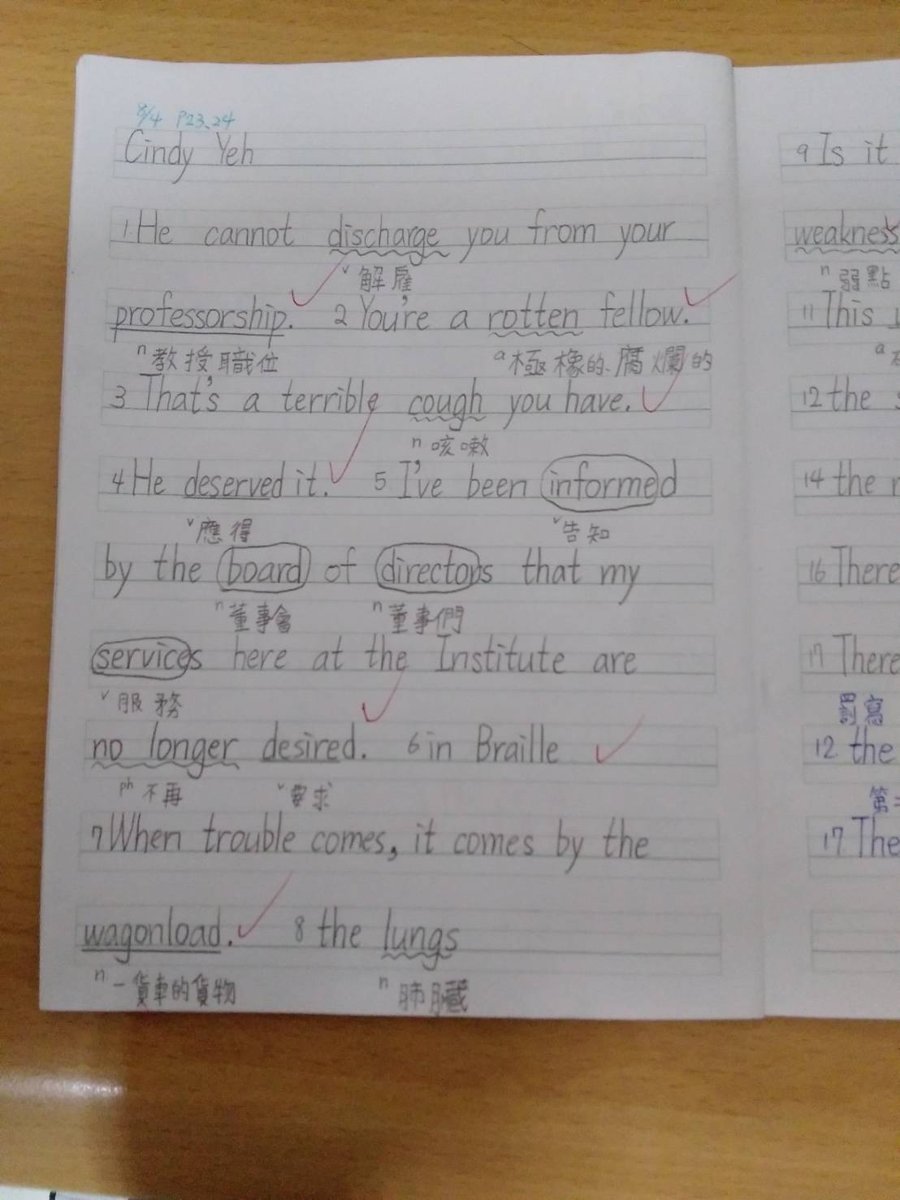 8/4 P23、24
Cindy Yeh
1 He cannot discharge you from your
v 解雇
professorship. 2 You're a rotten fellow.
n 教授職位 a 極橡的、腐爛的
3 That's a terrible cough you have.
n 咳嗽
4 He deserved it. 5 I've been informed
v 應得 v 告知
by the board of directors that my
n 董事會 n 董事們
services here at the Institute are
v 服務
no longer desired. 6 in Braille
ph 不再 v 要求
7 When trouble comes, it comes by the
wagonload. 8 the lungs
n 一貨車的貨物 n 肺臟
9 Is it
weakness
n 弱點
11 This
a
12 the
14 the
16 There
17 There
罰寫
12 the
17 The